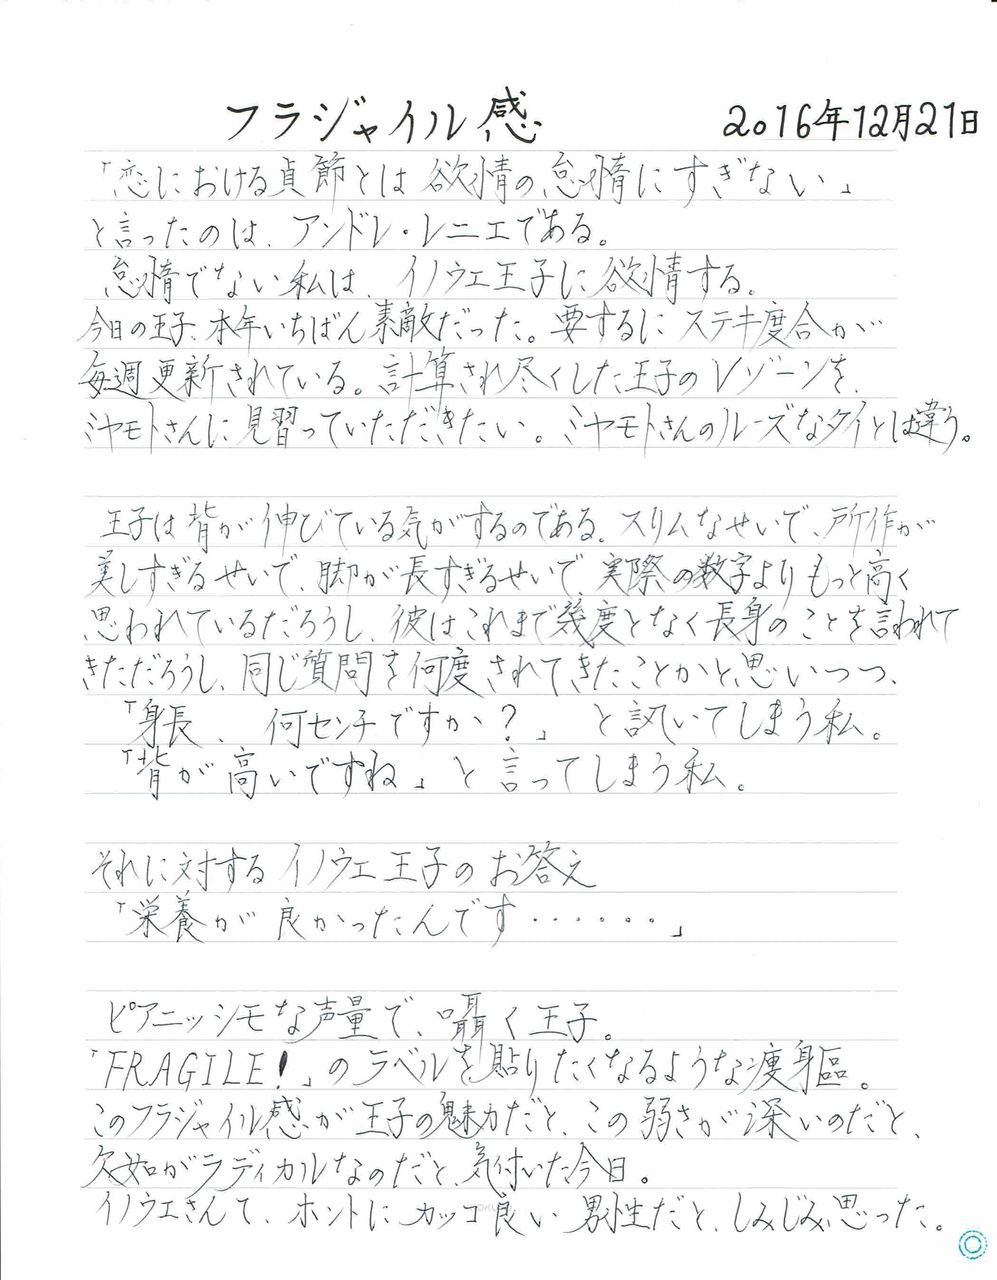 フラジャイル感 2016年12月21日
「恋における貞節とは欲情の怠惰にすぎない」
と言ったのは、アンドレ・レニエである。
怠惰でない私は、イノウエ王子に欲情する。
今日の王子、本年いちばん素敵だった。要するにステキ度合が
毎週更新されている。計算され尽くした王子のVゾーンを、
ミヤモトさんに見習っていただきたい。ミヤモトさんのルーズなタイとは違う。
王子は背が伸びている気がするのである。スリムなせいで、所作が
美しすぎるせいで、脚が長すぎるせいで実際の数字よりもっと高く
思われているだろうし、彼はこれまで幾度となく長身のことを言われて
きただろうし、同じ質問を何度されてきたことかと、思いつつ、
「身長、何センチですか?」と訊いてしまう私。
「背が高いですね」と言ってしまう私。
それに対するイノウエ王子のお答え
「栄養が良かったんです・・・・・・」
ピアニッシモな声量で、囁く王子。
「FRAGILE!」のラベルを貼りたくなるような痩身軀。
このフラジャイル感が王子の魅力だと、この弱さが深いのだと、
欠如がラディカルなのだと、気付いた今日。
イノウエさんて、ホントにカッコ良い男性だと、しみじみ思った。